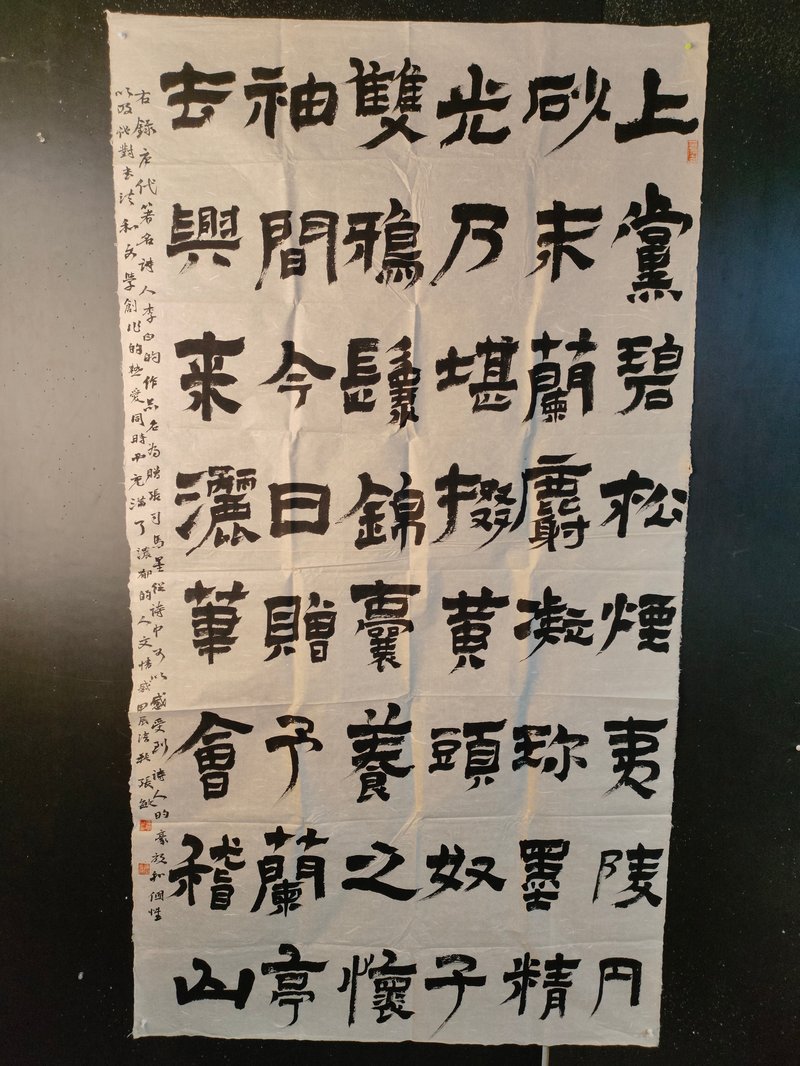 上黨碧松煙夷陵丹
砂末蘭麝凝珍墨精
光乃堪掇黄頭奴子
雙鴉鬟錦囊養之懷
袖間今日贈予蘭亭
去興来灑筆會稽山
右録唐代著名诗人李白的作品名为赠張司馬墨從詩中可以感受到诗人的豪放和個性
以及他對书法和文學創作的热愛同時也充滿了濃郁的人文情感甲辰清秋張敏